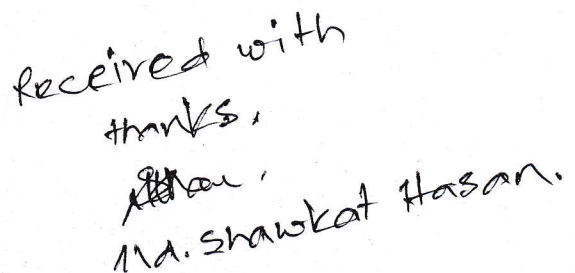 Received with
thanks.
Md. Shawkat Hasan.